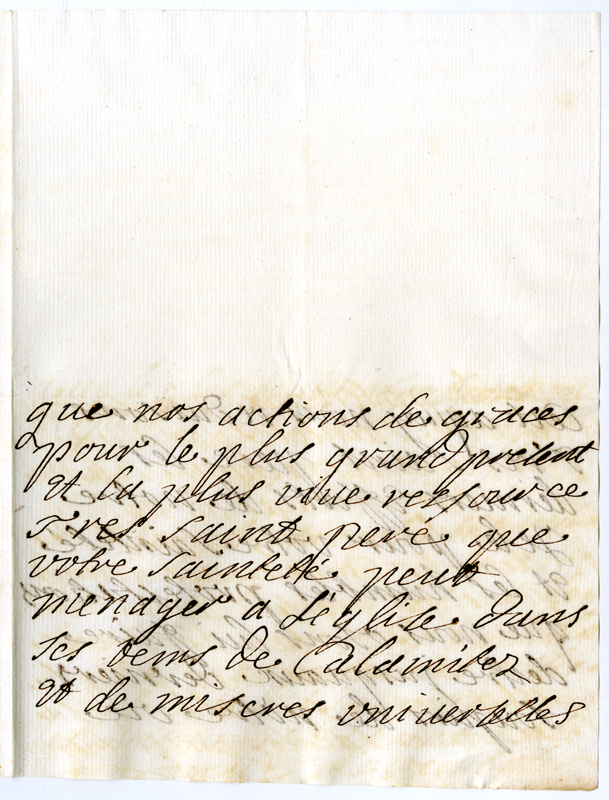 que nos actions de graces
pour le plus grand présent
et la plus viue ressource
Tres saint peré que
votre sainteté peut
menager a L'église dans
ses tems de Calamitez
et de miseres vniuerselles